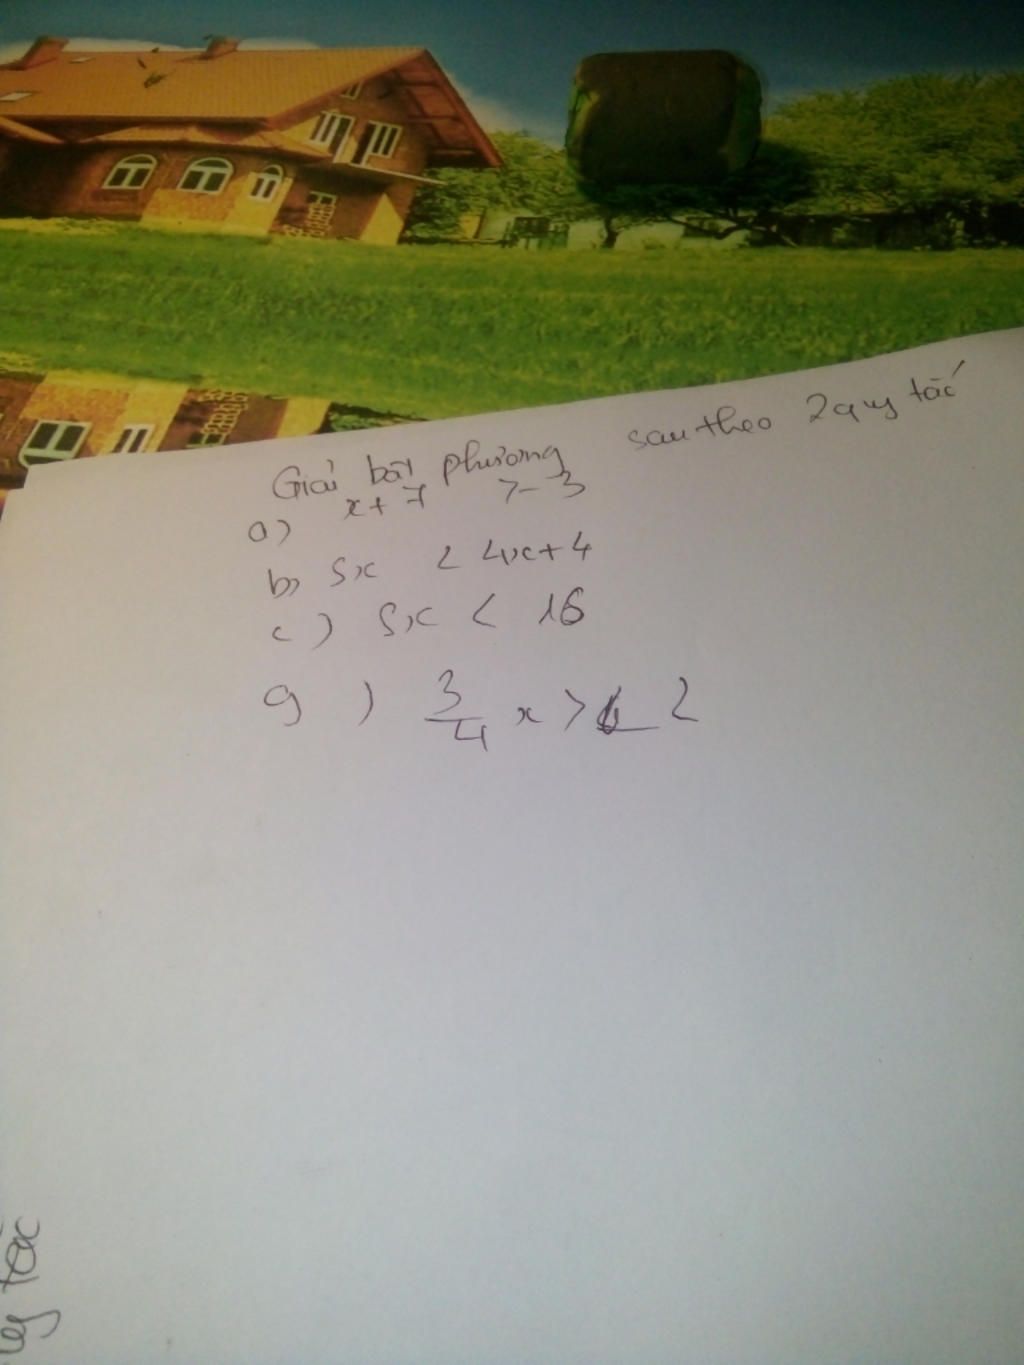 Giải bất phương sau theo 2 quy tắc
a) x + 7 > - 3
b) 5x < 4x + 4
c) 5x < 16
g) 3/4 x > 2
uy tắc